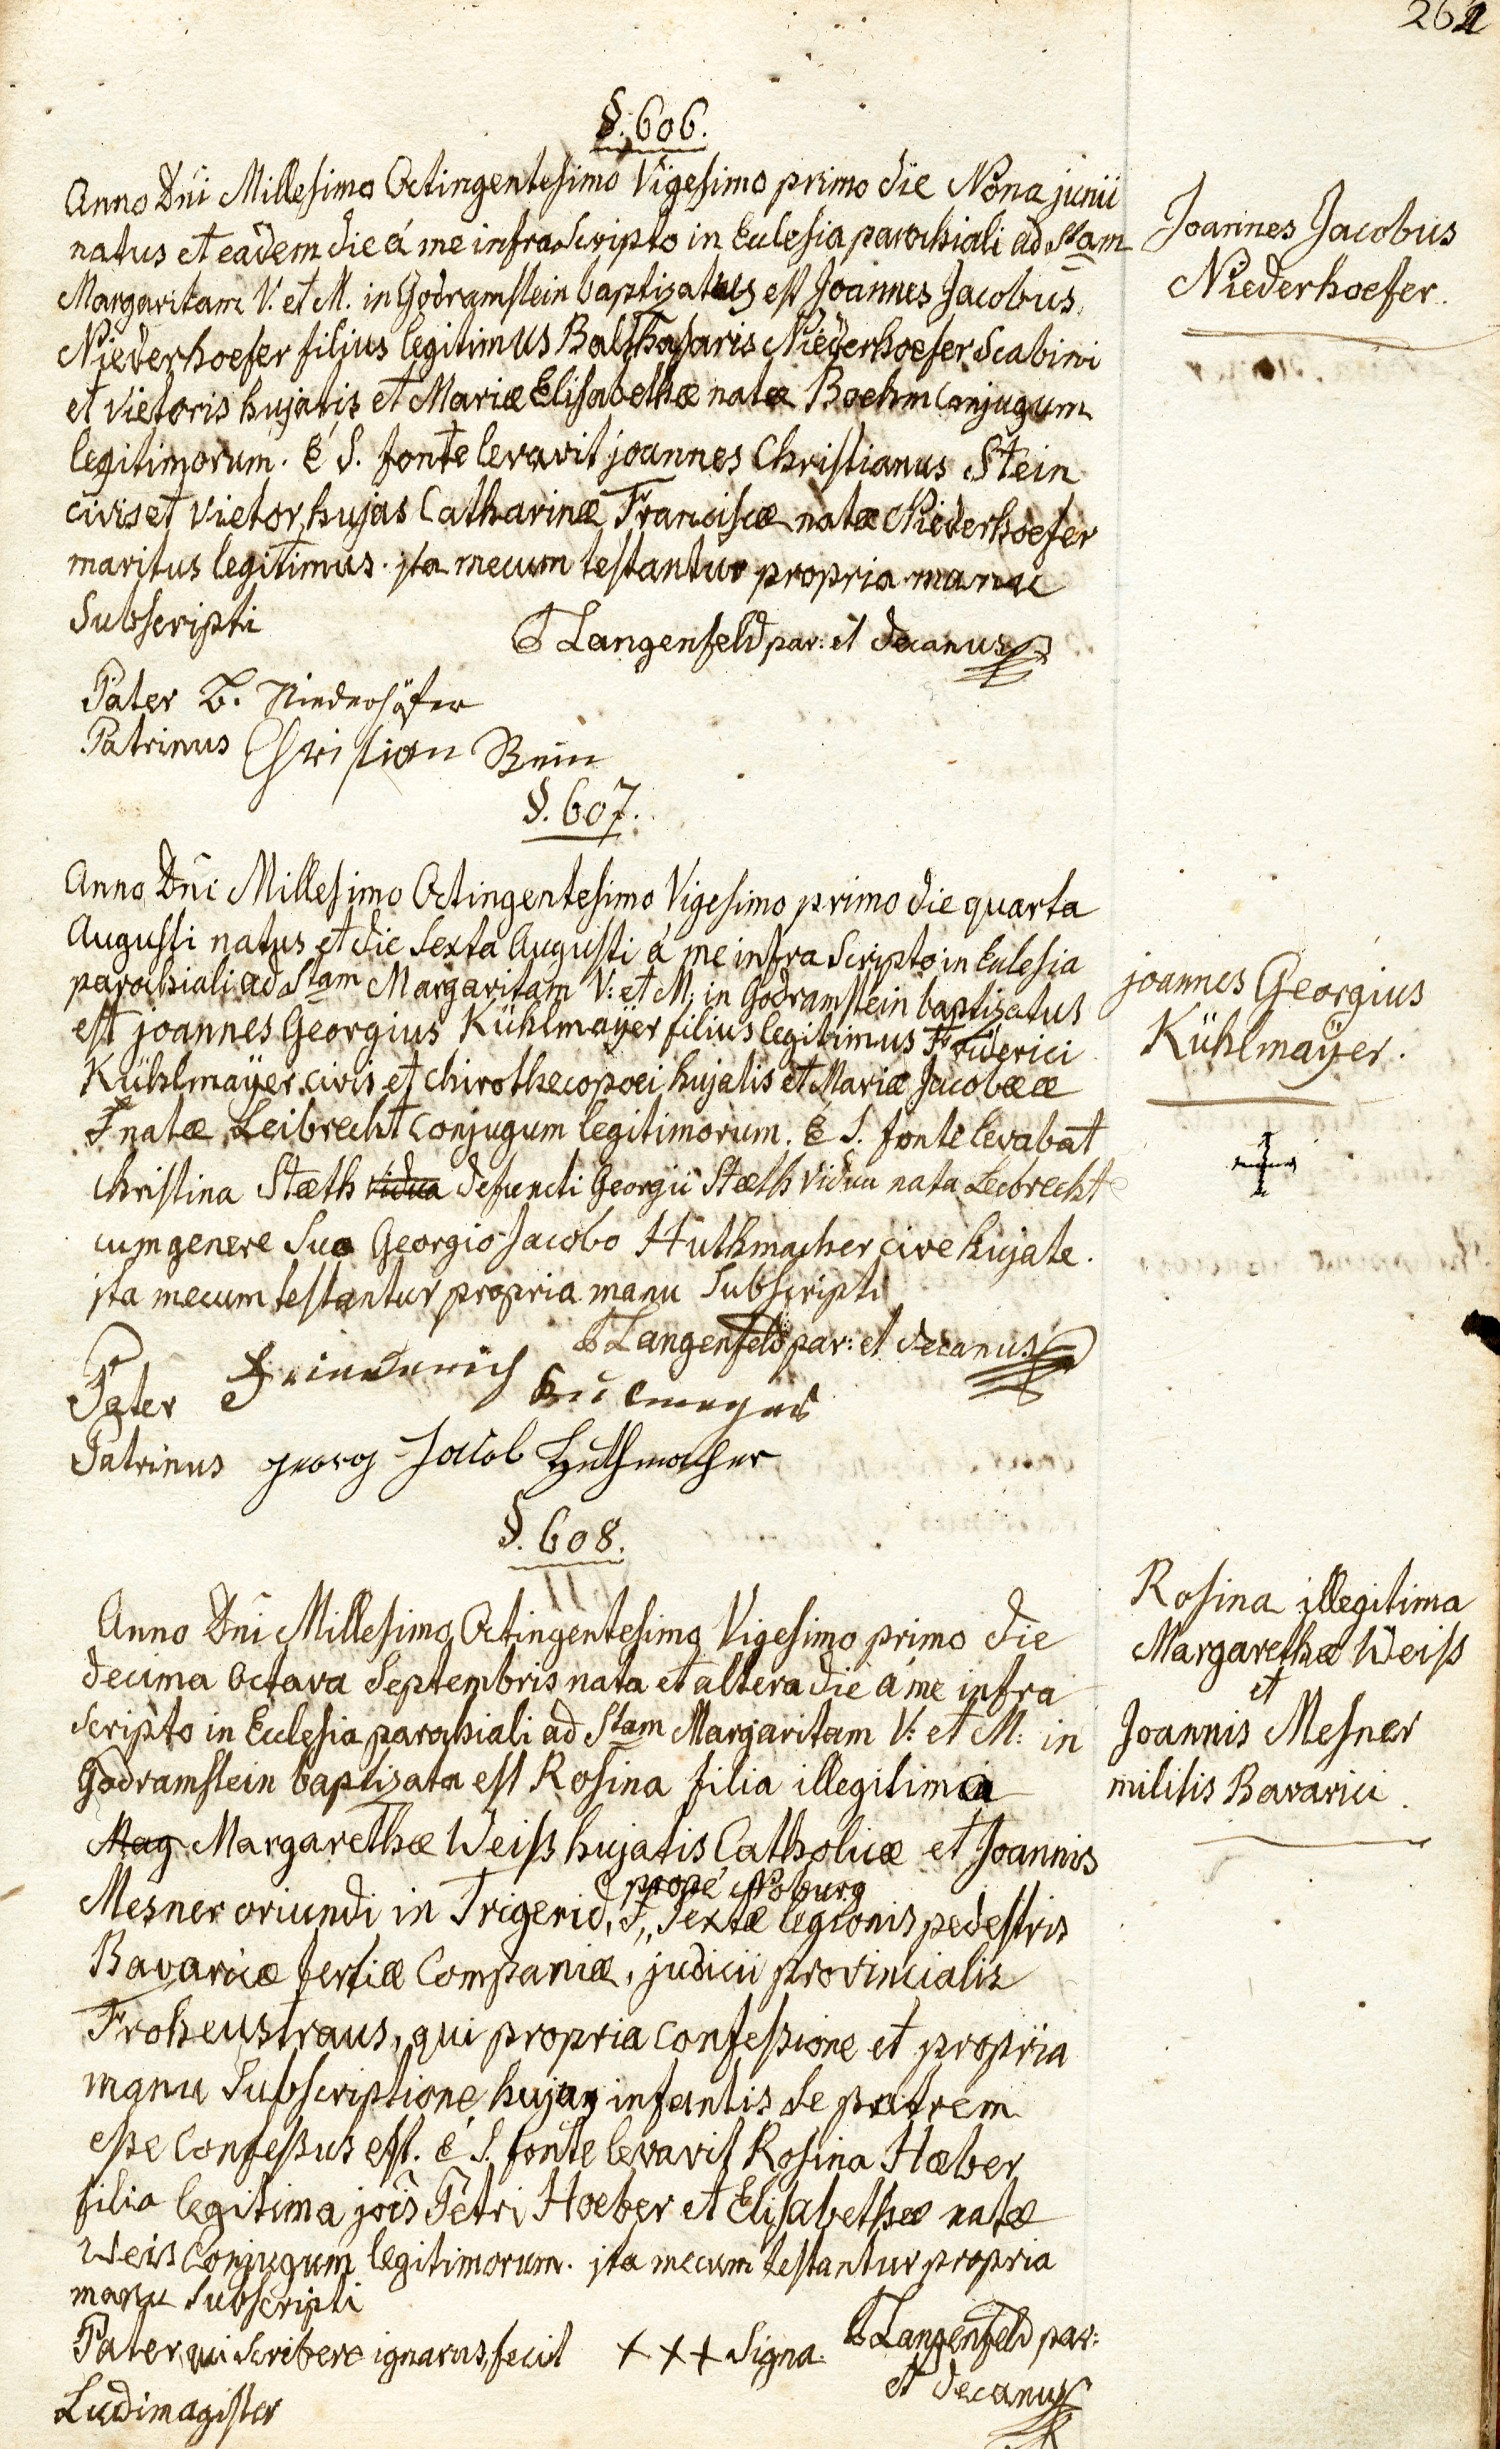 261
§. 606.
Anno Dni Millesimo Octingentesimo Vigesimo primo die Nona junii
natus et eadem die á me infra Scripto in Ecclesia parochiali ad Stam
Margaritam V. et M. in Godramstein baptizatus est Joannes Jacobus
Niederhoefer filius legitimus Balthasaris Niederhoefer Scabini
et vietoris hujatis et Mariæ Elisabethæ natæ Boehm Conjugum
legitimorum. É S. fonte levavit joannes Christianus Stein
civis et vietor hujas Catharinæ Franciscæ natæ Niederhoefer
maritus legitimus. jta mecum testantur propria manu
Subscripti
Langenfeld par: et decanus
Pater B. Niederhöfer
Patrinus Christian
Joannes Jacobus
Niederhoefer.
§. 607.
Anno Dni Millesimo Octingentesimo Vigesimo primo die quarta
Augusti natus et die Sexta Augusti á me infra Scripto in Eclesia
parochiali ad Stam Margaritam V: et M: in Godramstein baptizatus
est joannes Georgius Kühlmaÿer filius legitimus Friderici
Kühlmaÿer civis et chirothecopoei hujatis et Mariæ Jacobææ
natæ Leibrecht Conjugum legitimorum. É S. fonte levabat
Christina Stæth vidua defuncti Georgii Stæth vidua nata Leibrecht
cum genere Suo Georgio Jacobo Huthmacher cive hujate.
jta mecum testantur propria manu Subscripti
Langenfeld par: et decanus
Pater Friederich
Patrinus georg Jacob Huthmacher
joannes Georgius
Kühlmaÿer.
§. 608.
Anno Dni Millesimo Octingentesimo Vigesimo primo die
decima Octava Septembris nata et altera die á me infra
Scripto in Ecclesia parochiali ad Stam Margaritam V: et M: in
Godramstein baptizata est Rosina filia illegitima
Mag Margarethæ Weiss hujatis Catholicæ et Joannis
prope
Mesner oriundi in Sextæ legionis pedestris
Bavaricæ tertiæ Companiæ, judicii provincialis
Frohenstraus, qui propria Confessione et propria
manu Subscriptione hujas infantis Se patrem
esse Confessus est. é S. fonte levavit Rosina Hœber
filia legitima jois Petri Hoeber et Elisabethæ natæ
Weis Conjugum legitimorum. jta mecum testantur propria
manu Subscripti
Pater qui Scribere ignarus, fecit + + + Signa. Langenfeld par:
et decanus
Ludimagister
Rosina illegitima
Margarethæ Weiss
et
Joannis Mesner
militis Bavarici.